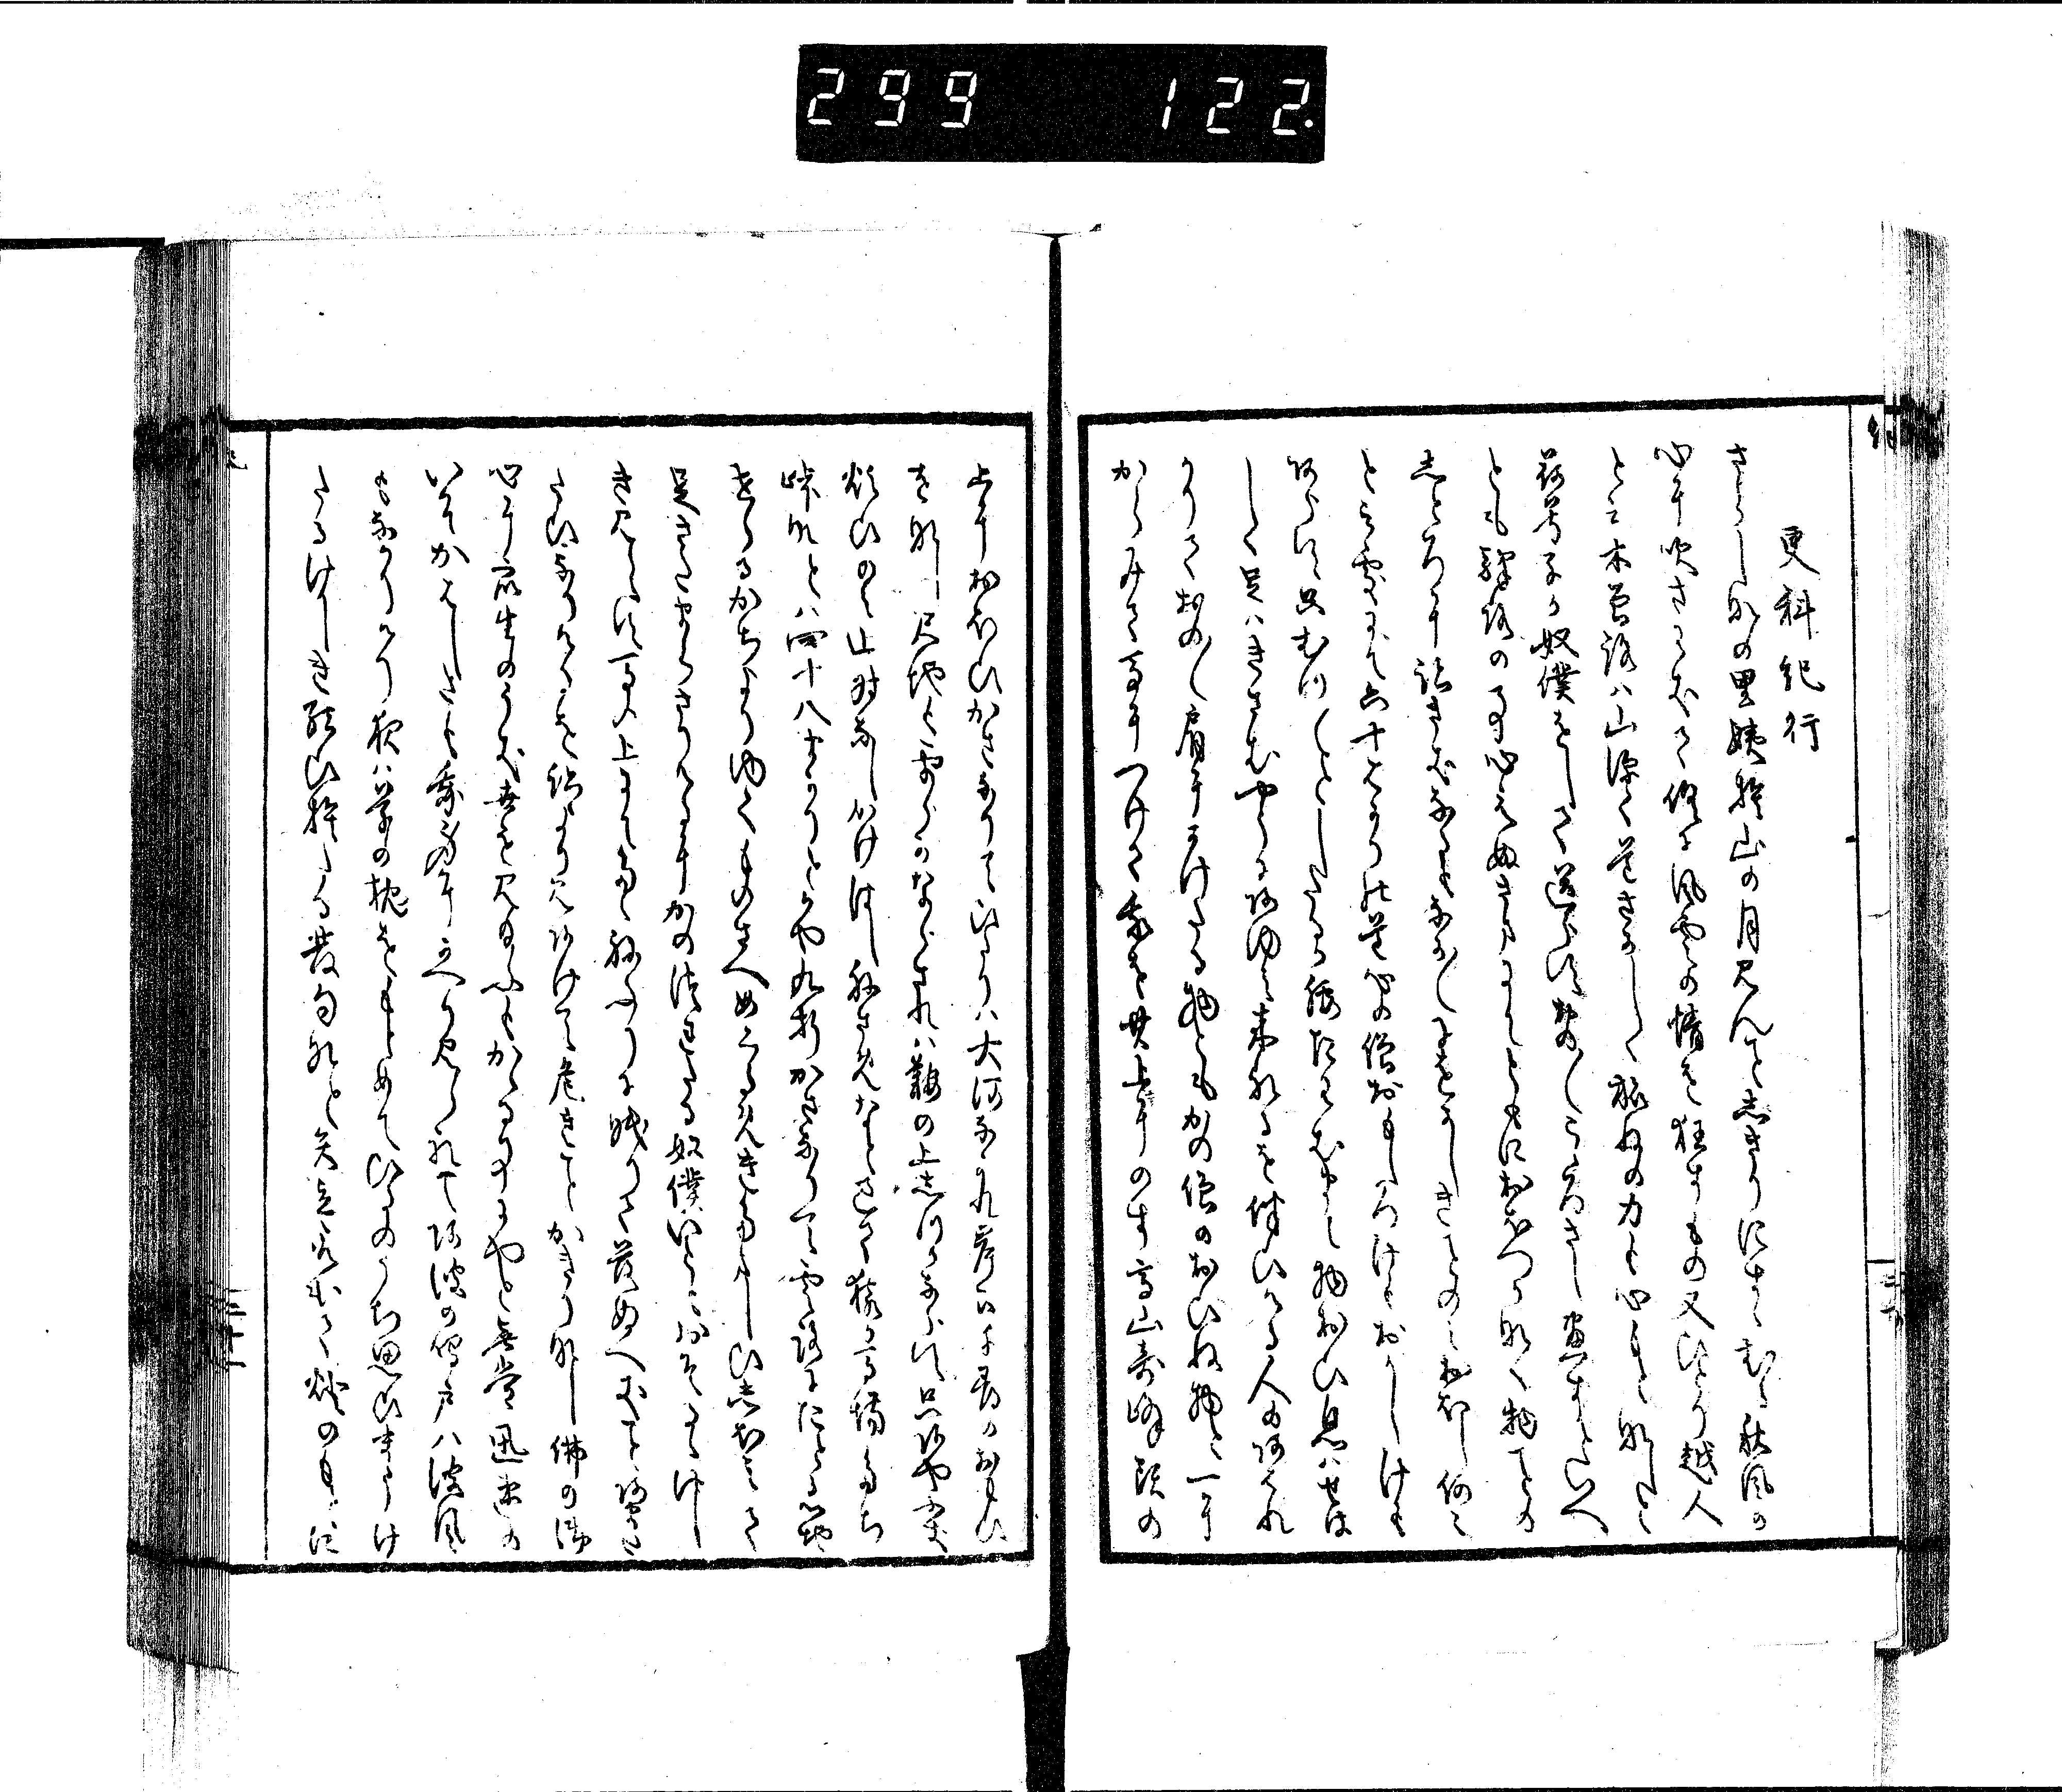 299 122.
更科紀行
さらしなの里姨捨山の月見んと志きりにすゝむる秋風の
心に吹さはきて倶に風雲の情を狂すもの又ひとり越人
と云木曽路は山深く道さかしく旅ねの力も心もとなしと
荷兮子か奴僕をして送らす各〳〵こゝろさし尽すといへ
とも驛路の事心えぬさまにてともにおほつかなく物ことの
志とろに跡さきなるも中〳〵におかしきことのみおほし何々
と云處にて六十はかりの道心の僧おもしろけもおかしけも
あらす只むつ〳〵としたるか腰たはむまて物おひ息はせは
しく足はきさむやうにあゆみ来れるを伴ひける人のあはれ
かりておの〳〵肩にかけたる物ともかの僧のおひね物と一に
からみて馬につけて我を其上にのす高山奇峰頭の
上におほひかさなりて左りは大河なかれ岸下の千尋のおもひ
をなし尺地も平らかならされは鞍の上志つかならす只あやうき
煩ひのみ止時なしかけはし寝さめなと過て猿か馬場たち
峠なとは四十八まかりとかや九折かさなりて雲路にたとる心地
せらるかちよりゆくものさへ眼くるめきたましひ志ほみて
足さたまらさりけるにかの伴ひたる奴僕いともおそるゝけし
き見えす馬の上にて只ねふりに眠りて落ぬへきことあまた
たひなりけるを跡より見あけて危きことかきりなし佛の御
心に衆生のうき世を見給ふもかゝる事にやと無常迅速の
いそかはしさも我身にかへり見られて阿波の鳴戸は波風
もなかりけり夜は草の枕をもとめてひるのうち思ひまうけ
たるけしき結ひ捨たる發句なと矢立取出て燈のもとに